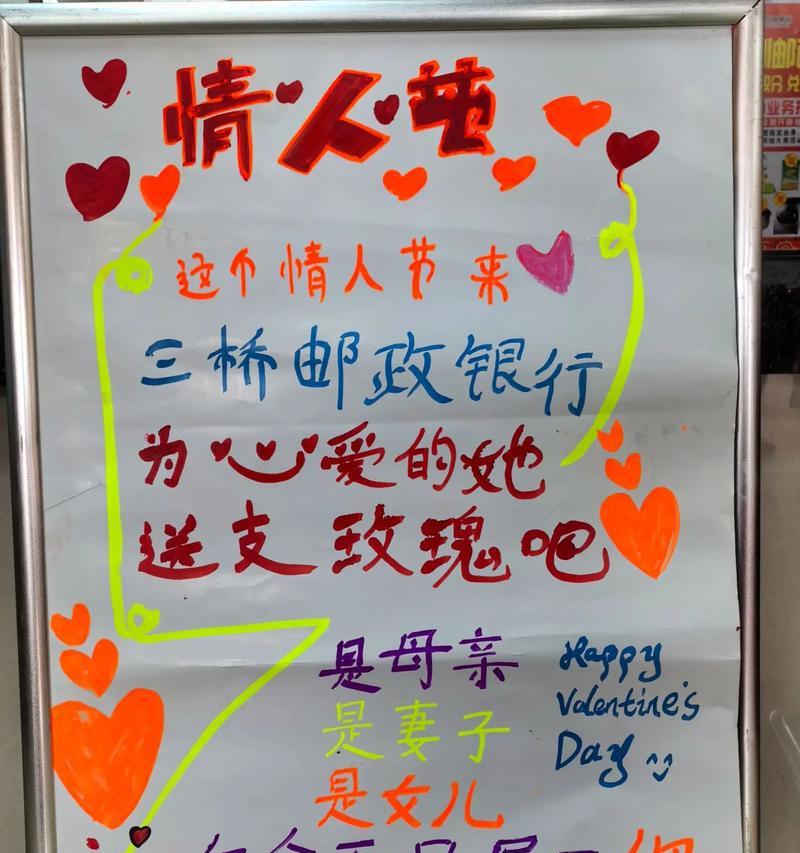 情人节
这个情人节 来
三桥邮政银行
为心爱的她
送支玫瑰吧
是母亲
是妻子
是女儿
Happy
Valentine's
Day